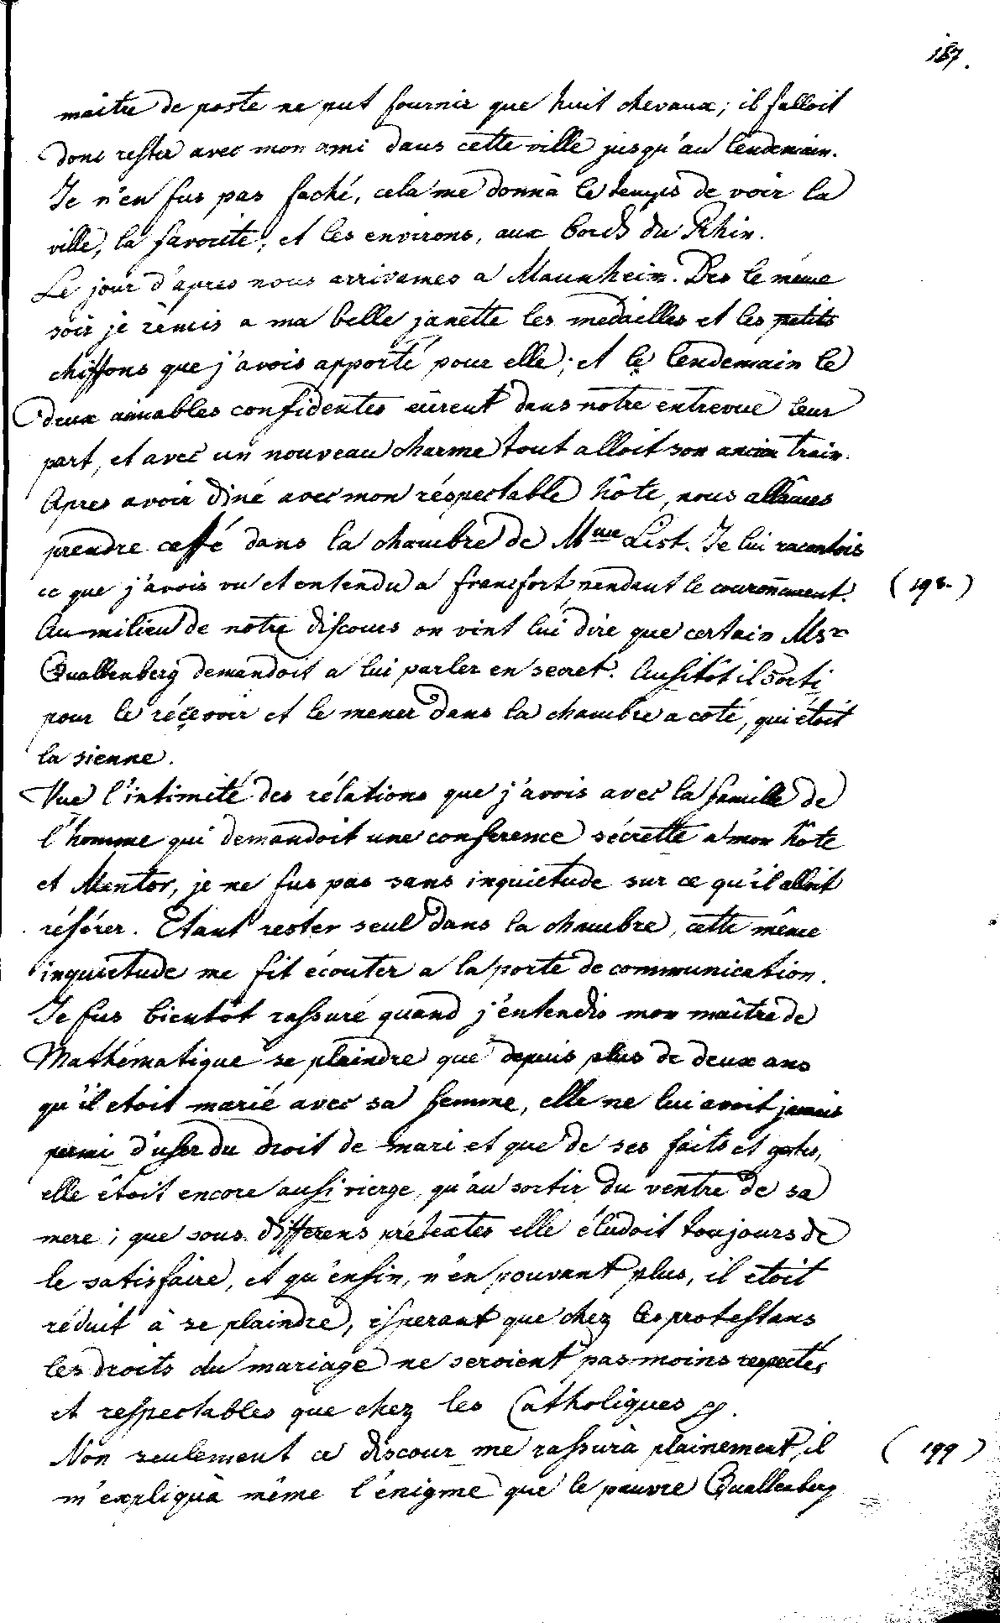 187.
maitre de poste ne put fournir que huit chevaux; il falloit
donc rester avec mon ami dans cette ville jusqu'au lendemain.
Je n'en fus pas faché, cela me donnà le temps de voir la
ville, la favorite, et les environs, aux bords du Rhin.
Le jour d'apres nous arrivames a Mannheim. Des le même
soir je remis a ma belle janette les medailles et les petits
chiffons que j'avois apporté pour elle; et le lendemain le
deux aimables confidentes eûrent dans notre entrevue leur
part, et avec un nouveau charme tout alloit son ancien train.
Apres avoir diné avec mon réspectable hôte, nous allâmes
prendre caffé dans la chambre de Mme List. Je lui racontois
ce que j'avois vu et entendu a francfort pendant le couronnement. (198.)
Au milieu de notre discours on vint lui dire que certain Msr
Quallenberg demandoit a lui parler en secret. Ausitôt il sorti
pour le réçevoir et le mener dans la chambre a coté, qui étoit
la sienne.
Vue l'intimité des rélations que j'avois avec la famille de
l'homme qui demandoit une conference sécrette a mon hôte
et Mentor, je ne fus pas sans inquietude sur ce qu'il alloit
référer. Etant rester seul dans la chambre, cette même
inquietude me fit écouter a la porte de communication.
Je fus bientôt rassuré quand j'entendis mon maître de
Mathématique se plaindre que depuis plus de deux ans
qu'il etoit marié avec sa femme, elle ne lui avoit jamais
permi d'user du droit de mari et que de ses faits et gestes,
elle êtoit encore ausi vierge, qu'au sortir du ventre de sa
mere; que sous differens prétextes elle éludoit toujours de
le satisfaire, et qu'enfin, n'en pouvant plus, il etoit
réduit à se plaindre, esperant que chez les protestans
les droits du mariage ne seroient pas moins respectés
et respectables que chez les Catholiques
Non seulement ce discour me rassurà plainement, il (199)
m'expliquà même l'énigme que le pauvre Quallenberg